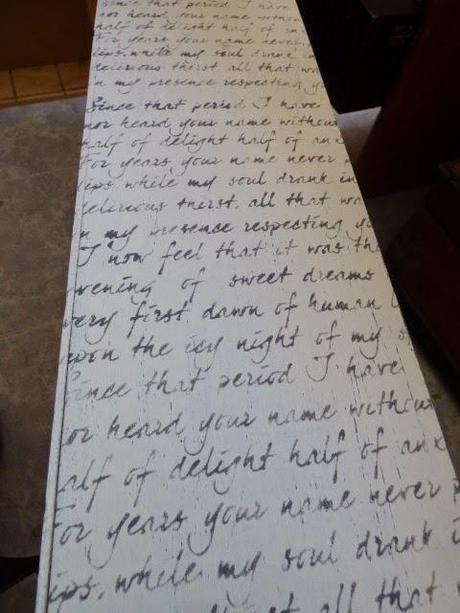 since that period I have
nor heard your name withou
half of delight half of an
For years your name never
lips, while my soul drank i
delirious thirst all that wa
in my presence respecting y
Since that period I have
nor heard your name without
half of delight half of anx
For years your name never p
lips, while my soul drank in
delirious thirst, all that wa
n my presence respecting yo
I now feel that it was th
evening of sweet dreams
very first dawn of human l
upon the icy night of my s
Since that period I have
or heard your name without
alf of delight half of anx
For years your name never p
ips, while my soul drank i
delirious thirst all that w